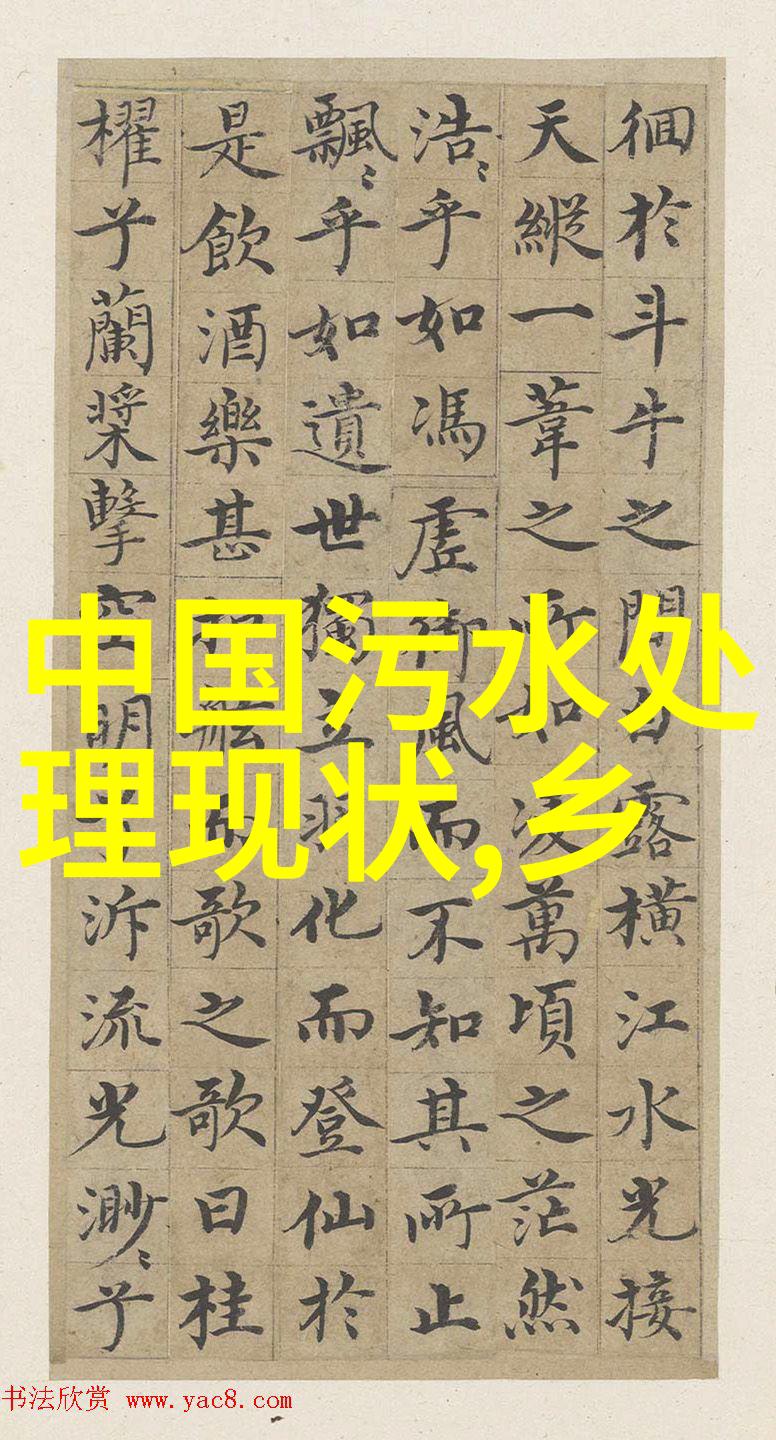 徊於斗牛之間白露橫江水光接
天縱一葦之所如凌萬頃之茫然
浩〻乎如馮虛御風而不知其所止
飄〻乎如遺世獨立羽化而登仙於
是飲酒樂甚扣舷而歌之歌曰桂
櫂兮蘭槳擊空明兮泝流光渺〻兮
中国污水处
理现状,乡
书法欣赏 www.yac8.com